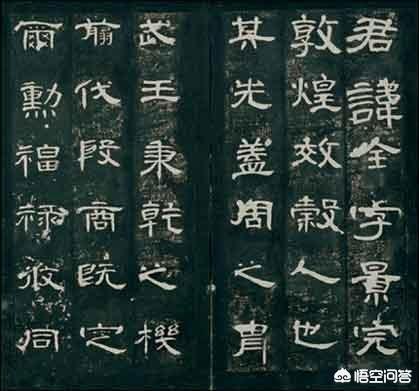 君諱全字景完
敦煌效穀人也
其先蓋周之胄
武王秉乾之機
翦伐殷商既定
爾勳福祿攸同
悟空问答